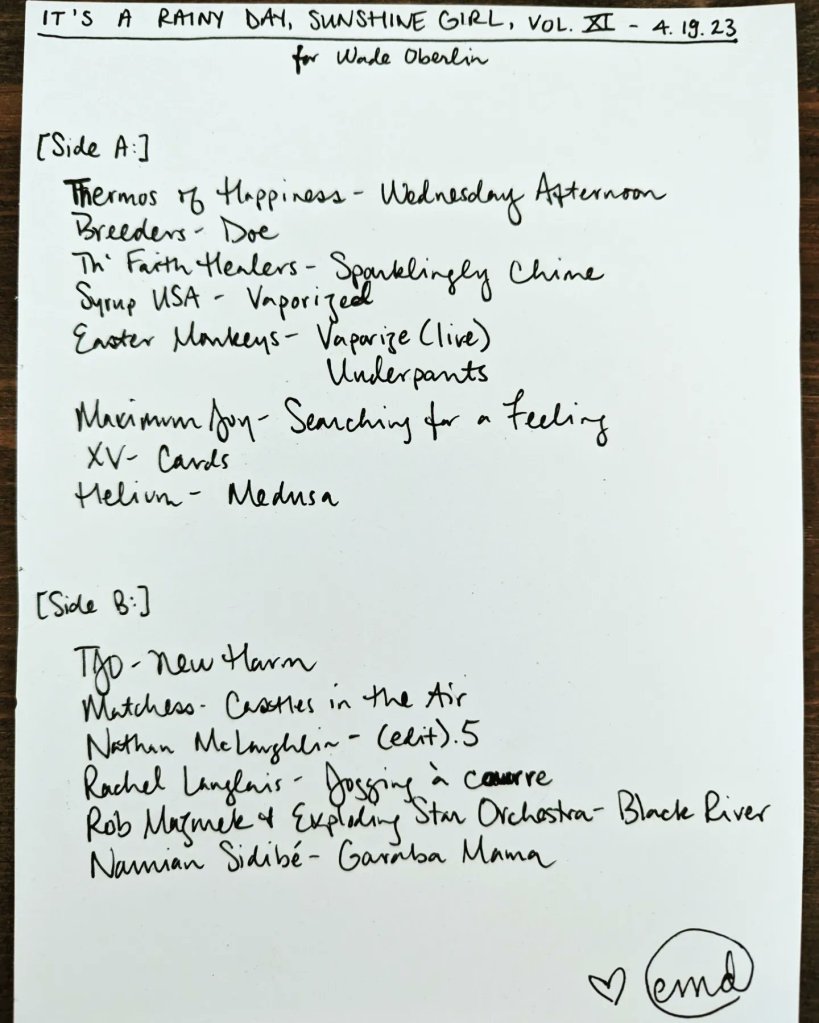 IT'S A RAINY DAY, SUNSHINE GIRL, VOL. XI - 4.19.23
for Wade Oberlin
[Side A:]
Thermos of Happiness - Wednesday Afternoon
Breeders - Doe
Th' Faith Healers - Sparklingly Chime
Syrup USA - Vaporized
Easter Monkeys - Vaporize (live)
Underpants
Maximum Joy - Searching for a Feeling
XV - Cards
Helium - Medusa
[Side B:]
- New Harm
Matchess - Castles in the Air
Nathan McLaughlin - (edit).5
Rachel Langlais - Jogging à
Rob Mazurek & Exploding Star Orchestra - Black River
Namian Sidibé - Garaba Mama
♡ emd